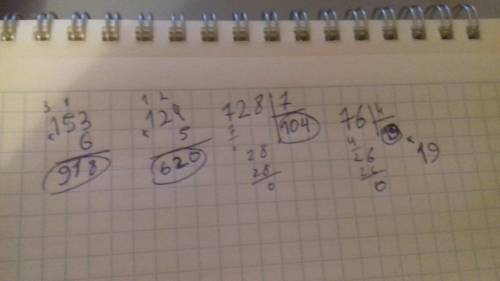 3 1
153
× 6
918
1 2
124
× 5
620
728 | 7
7 104
28
28
0
76 | 4
4 19
36
36
0